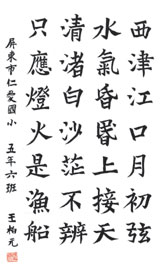 西津江口月初弦
水氣昏昏上接天
清渚白沙茫不辨
只應燈火是漁船
屏東市仁愛國小 五年六班 王柏元